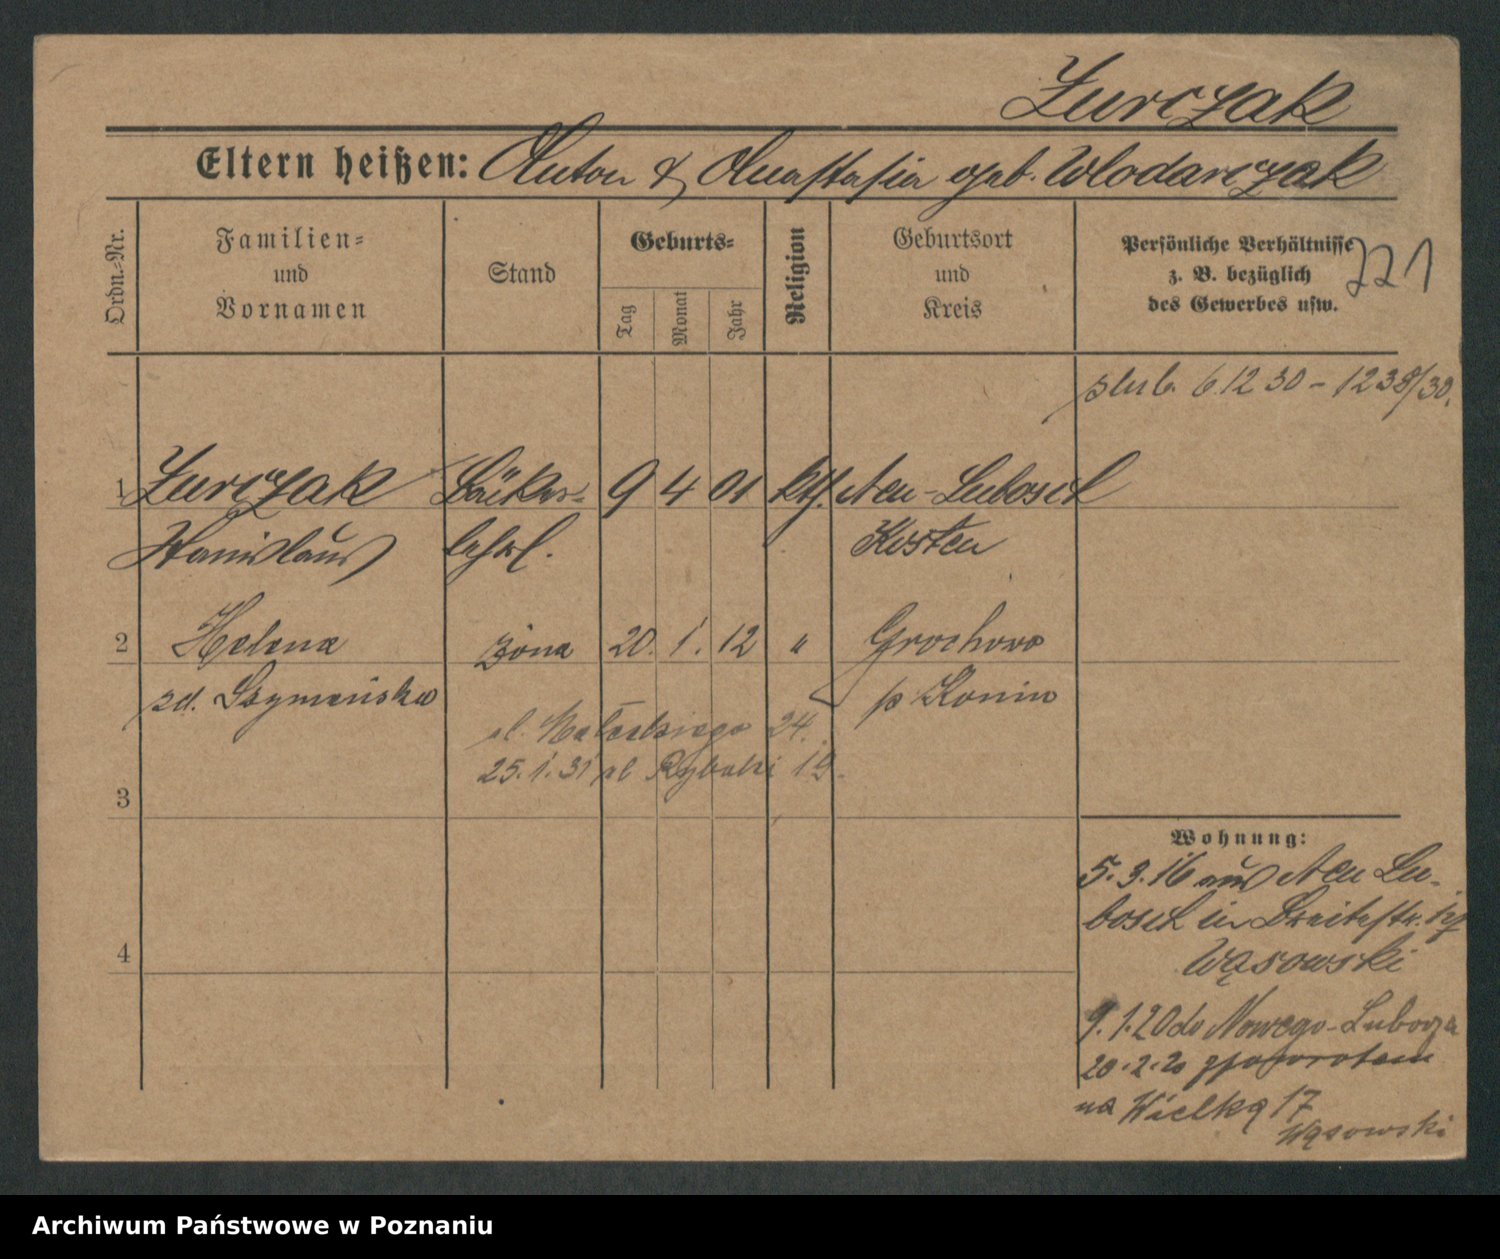 Zurczak
Eltern heißen: Anton & Anastasia geb. Wlodarczak
Ordn.=Nr.
Familien=
und
Vornamen
Stand
Geburts=
Tag
Monat
Jahr
Religion
Geburtsort
und
Kreis
Persönliche Verhältnisse
z. B. bezüglich
des Gewerbes usw.
721
ślub. 6.12 30 - 1238/30.
1 Zurczak Bäcker= 9 4 01 kth. Neu-Lubosch
Stanislaus lehrl. Kosten
2 Helena żona 20. 1. 12 " Grochowo
zd. Szymańska p Konin
ul. 24.
25.1.31 ul Rybaki 19.
3
4
Wohnung:
5.3.16 aus Neu Lu-
bosch in Breitestr. 17
Wąsowski
9.1.20 do Nowego-Lubosza
20.2.20 zpowrotem
na Wielką 17
Wąsowski
Archiwum Państwowe w Poznaniu